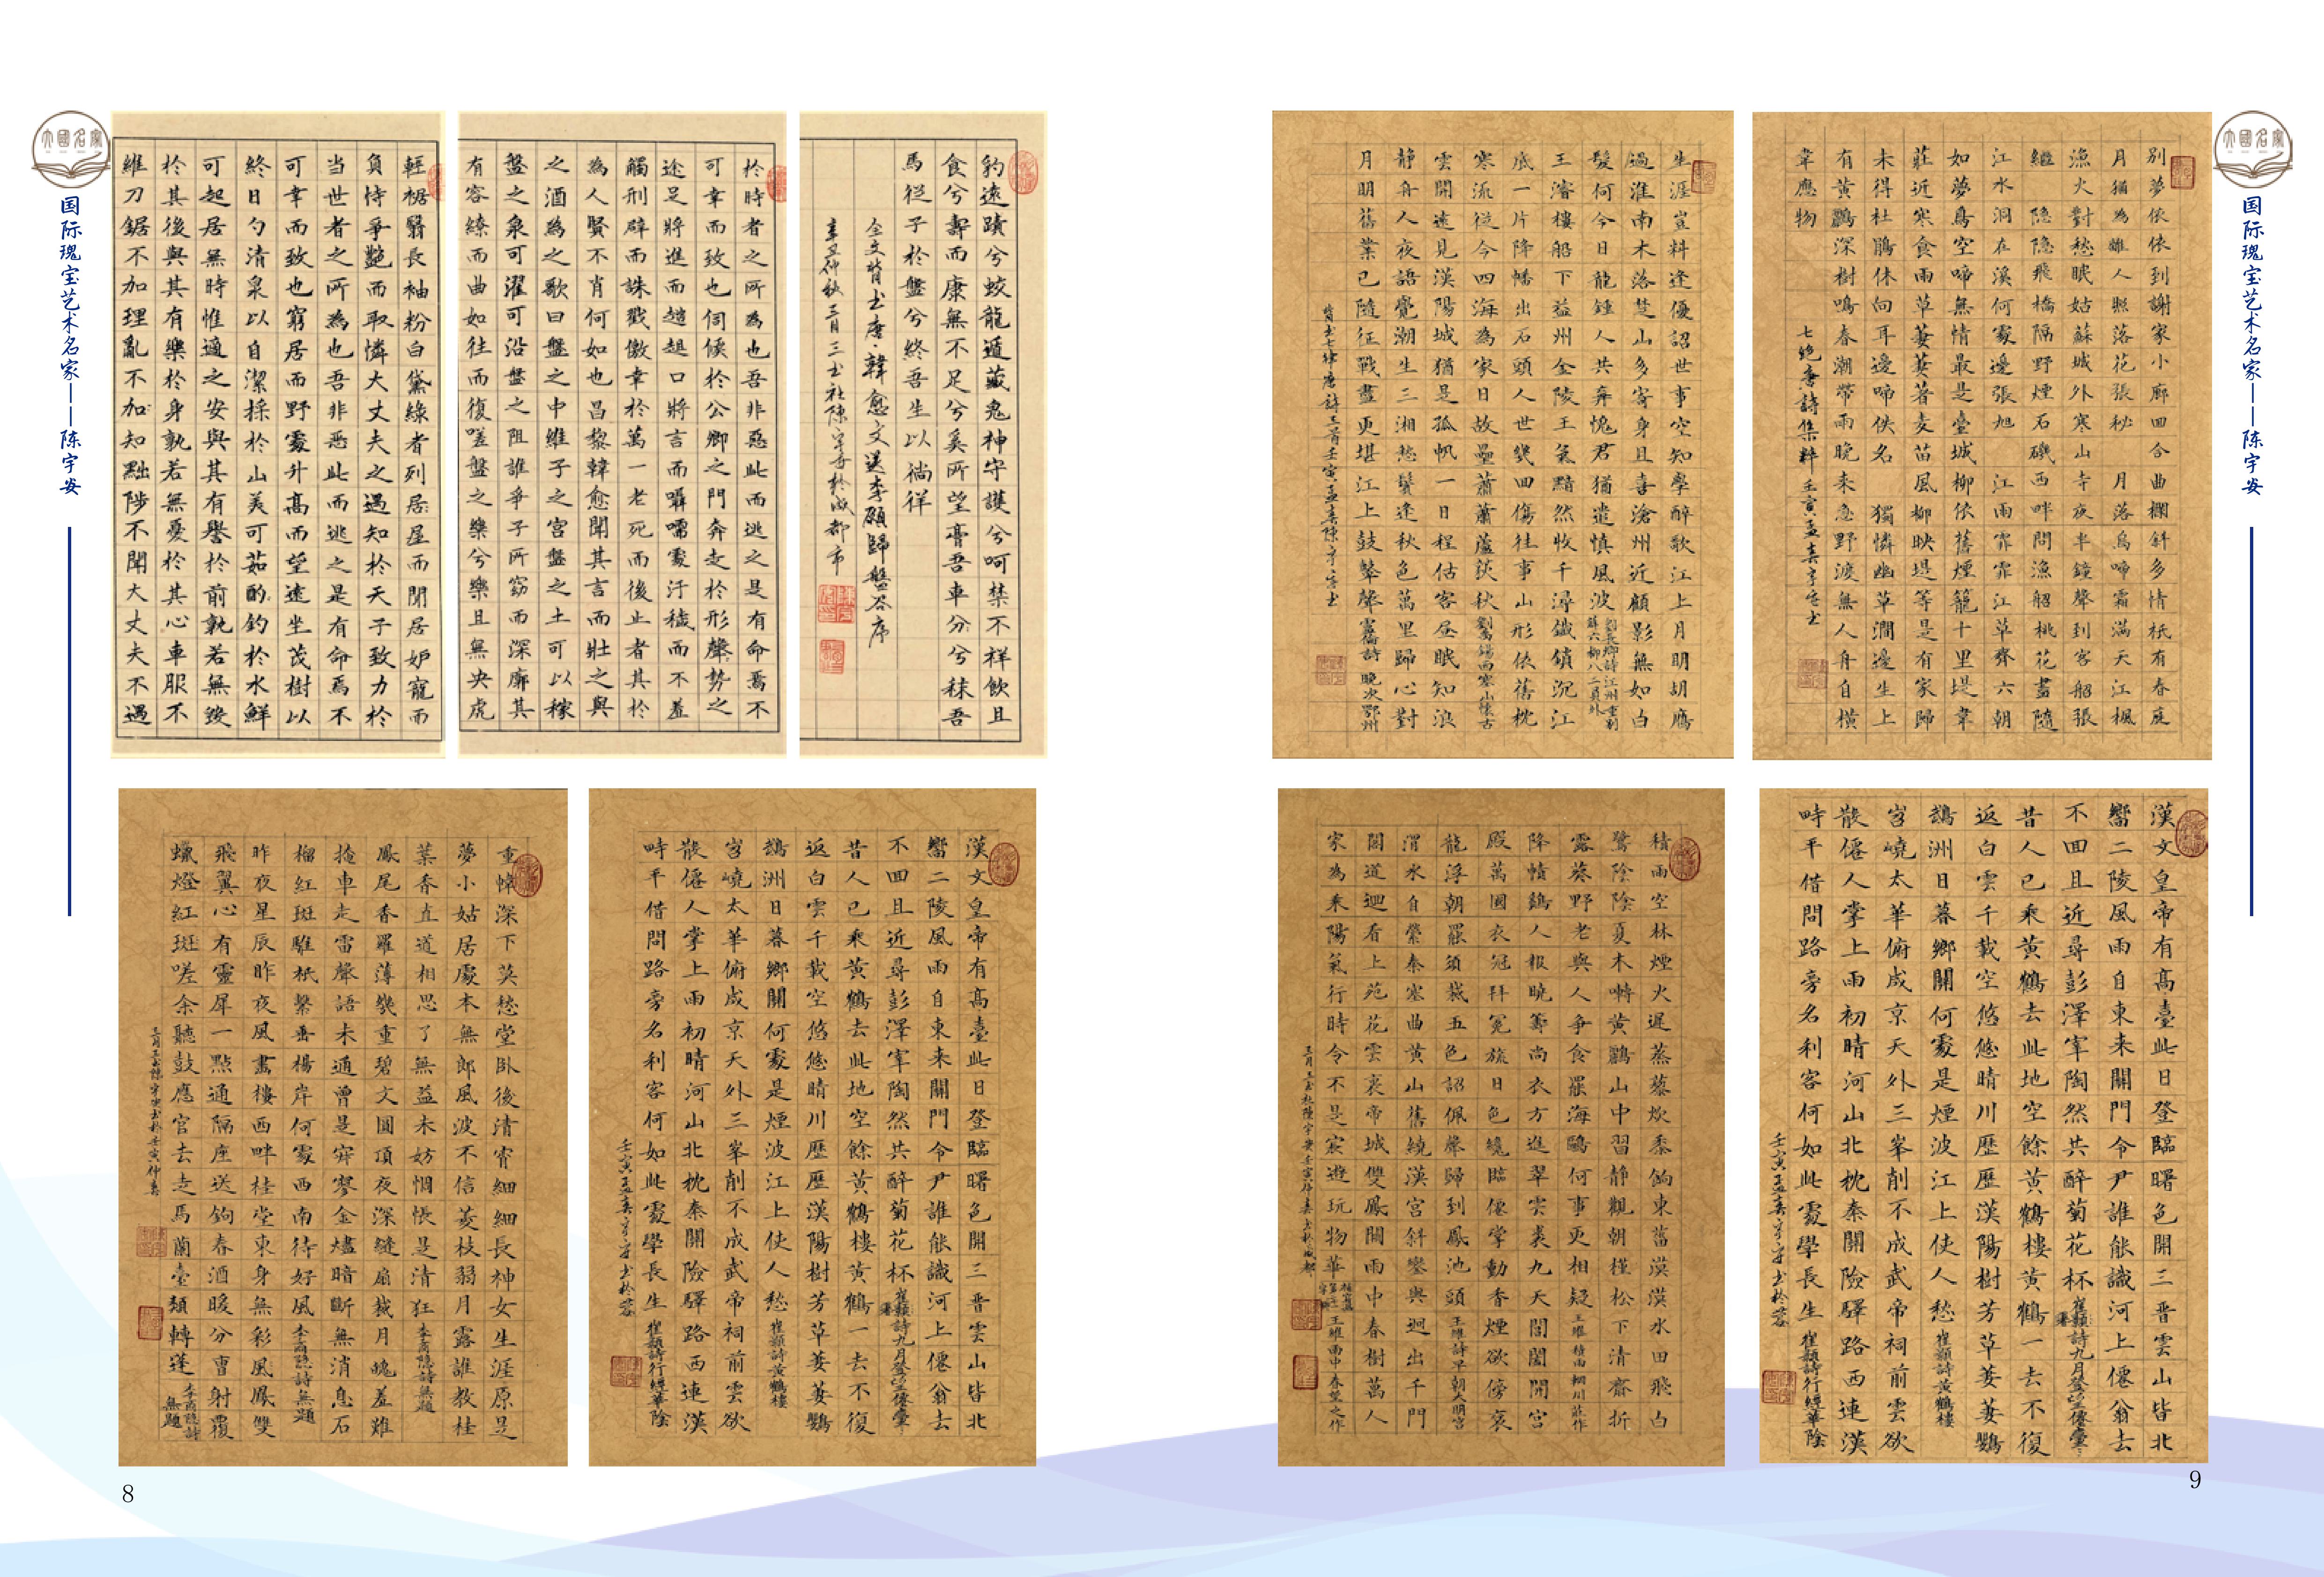 国际瑰宝艺术名家——陈宇安
輕裾翳長袖粉白黛綠者列居屋而閒居妒寵而
負恃爭艷而取憐大丈夫之遇知於天子致力於
当世者之所為也吾非惡此而逃之是有命焉不
可幸而致也窮居而野處升高而望遠坐茂樹以
終日勺清泉以自潔採於山美可茹酌釣於水鮮
可起居無時惟適之安與其有譽於前孰若無毀
於其後與其有樂於身孰若無憂於其心車服不
維刀鋸不加理亂不加知黜陟不聞大丈夫不遇
於時者之所為也吾非惡此而逃之是有命焉不
可幸而致也伺候於公卿之門奔走於形聲勢之
途足將進而趑趄口將言而囁嚅處汙穢而不羞
觸刑辟而誅戮儌幸於萬一老死而後止者其於
為人賢不肖何如也昌黎韓愈聞其言而壯之與
之酒為之歌曰盤之中維子之宮盤之土可以稼
盤之泉可濯可沿盤之阻誰爭子所窈而深廓其
有容繚而曲如往而復嗟盤之樂兮樂且無央虎
豹遠蹟兮蛟龍遁藏鬼神守護兮呵禁不祥飲且
食兮壽而康無不足兮奚所望膏吾車兮兮秣吾
馬從子於盤兮終吾生以徜徉
全文背书唐·韓愈文送李願歸盤谷序
辛丑仲秋三月三书社陳宇安於成都市
重幃深下莫愁堂臥後清宵細細長神女生涯原是
夢小姑居處本無郎風波不信菱枝弱月露誰教桂
葉香直道相思了無益未妨惆悵是清狂李商隱詩無題
鳳尾香羅薄幾重碧文圓頂夜深縫扇裁月魄羞難
掩車走雷聲語未通曾是寂寥金燼暗斷無消息石
榴紅斑騅祇繫垂楊岸何處西南待好風李商隱詩無題
昨夜星辰昨夜風畫樓西畔桂堂東身無彩鳳鳳雙
飛翼心有靈犀一點通隔座送鉤春酒暖分曹射覆
蠟燈紅斑嗟余聽鼓應官去走馬蘭臺類轉蓬李商隱詩無題
漢文皇帝有高臺此日登臨曙色開三晋雲山皆北
嚮二陵風雨自東来關門令尹誰能識河上僊翁去
不回且近尋彭澤宰陶然共醉菊花杯崔顥詩九月登望僊臺
昔人已乘黃鶴去此地空餘黃鶴樓黃鶴一去不復
返白雲千載空悠悠晴川歷歷漢陽樹芳草萋萋鸚
鵡洲日暮鄉關何處是煙波江上使人愁崔顥詩黃鶴樓
岧嶢太華俯咸京天外三峯削不成武帝祠前雲欲
散僊人掌上雨初晴河山北枕秦關險驛路西連漢
畤平借問路旁名利客何如此處學長生崔顥詩行經華陰
壬寅孟春宇安书於蓉
8
生涯豈料逢優詔世事空知學醉歌江上月明胡鴈
過淮南木落楚山多寄身且喜滄州近顧影無如白
髮何今日龍鍾人共棄愧君猶遣慎風波劉長卿詩江州重別薛六柳八二員外
王濬樓船下益州金陵王氣黯然收千尋鐵鎖沉江
底一片降幡出石頭人世幾回傷往事山形依舊枕
寒流從今四海為家日故壘蕭蕭蘆荻秋劉禹錫西塞山懷古
雲開遠見漢陽城猶是孤帆一日程估客昼眠知浪
静舟人夜語覺潮生三湘愁鬢逢秋色萬里歸心對
月明舊業已隨征戰盡更堪江上鼓鼙聲盧綸詩晚次鄂州
别夢依依到謝家小廊回合曲欄斜多情祇有春庭
月猶為離人照落花張泌 月落烏啼霜滿天江楓
漁火對愁眠姑蘇城外寒山寺夜半鐘聲到客船張
繼 隐隐飛橋隔野煙石磯西畔問漁船桃花盡隨
江水洞在溪何處邊張旭 江雨霏霏江草齊六朝
如夢鳥空啼無情最是臺城柳依舊煙籠十里堤韋
莊近寒食雨草萋萋著麦苗風柳映堤等是有家歸
未得杜鵑休向耳邊啼佚名 獨憐幽草澗邊生上
有黃鸝深樹鳴春潮帶雨晚来急野渡無人舟自橫
韋應物
七绝唐詩集粹壬寅孟春宇安书
積雨空林煙火遲蒸藜炊黍餉東菑漠漠水田飛白
鷺陰陰夏木囀黃鸝山中習静觀朝槿松下清齋折
露葵野老與人争食罷海鷗何事更相疑王維積雨輞川莊作
降幘鷄人報曉籌尚衣方進翠雲裘九天閶闔開宮
殿萬國衣冠拜冕旒日色纔臨僊掌動香煙欲傍袞
龍浮朝罷須裁五色詔佩聲歸到鳳池頭王維詩早朝大明宫
渭水自縈秦塞曲黃山舊繞漢宮斜鑾輿迥出千門
閣道迴看上苑花雲裏帝城雙鳳闕雨中春樹萬人
家為乘陽氣行時令不是宸遊玩物華王維雨中春望之作
漢文皇帝有高臺此日登臨曙色開三晋雲山皆北
嚮二陵風雨自東来關門令尹誰能識河上僊翁去
不回且近尋彭澤宰陶然共醉菊花杯崔顥詩九月登望僊臺
昔人已乘黃鶴去此地空餘黃鶴樓黃鶴一去不復
返白雲千載空悠悠晴川歷歷漢陽樹芳草萋萋鸚
鵡洲日暮鄉關何處是煙波江上使人愁崔顥詩黃鶴樓
岧嶢太華俯咸京天外三峯削不成武帝祠前雲欲
散僊人掌上雨初晴河山北枕秦關險驛路西連漢
畤平借問路旁名利客何如此處學長生崔顥詩行經華陰
壬寅孟春宇安书於蓉
9
国际瑰宝艺术名家——陈宇安